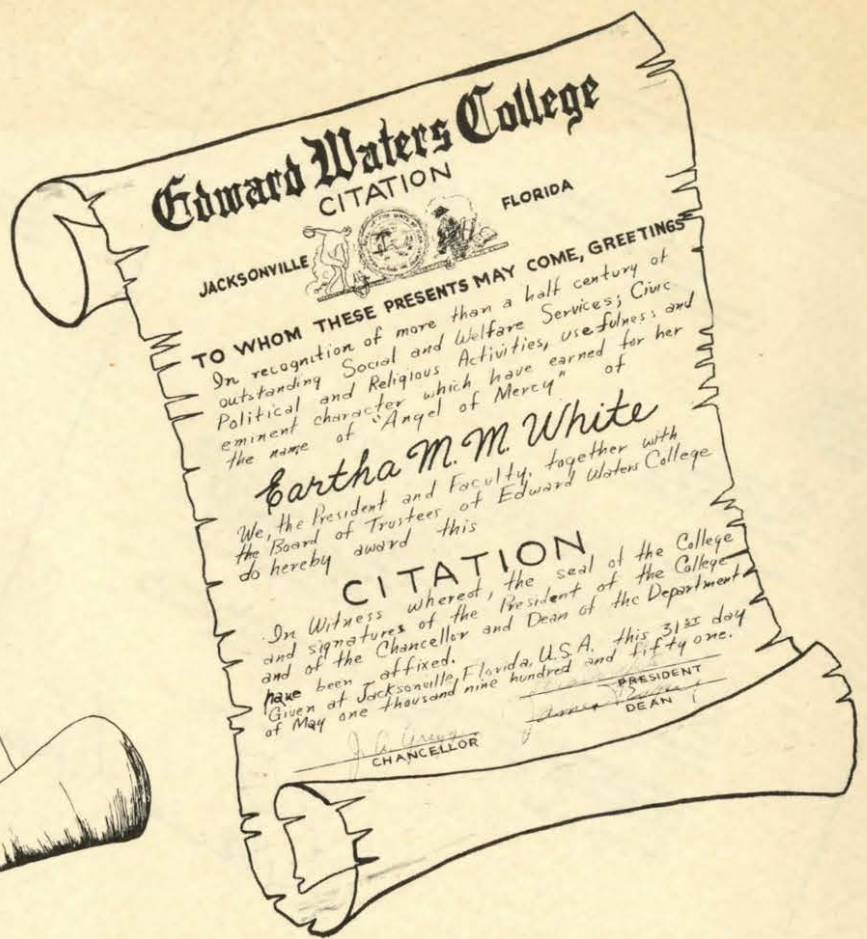 Edward Waters College
CITATION
JACKSONVILLE FLORIDA
TO WHOM THESE PRESENTS MAY COME, GREETINGS
In recognition of more than a half century of
outstanding Social and Welfare Services; Civic
Political and Religious Activities, usefulness and
eminent character which have earned for her
the name of "Angel of Mercy" of
Eartha M. M. White
We, the President and Faculty, together with
the Board of Trustees of Edward Waters College
do hereby award this
CITATION
In Witness whereof, the seal of the College
and signatures of the President of the College
and of the Chancellor and Dean of the Department
have been affixed.
Given at Jacksonville, Florida, U.S.A. this 31st day
of May one thousand nine hundred and fifty one.
PRESIDENT
James
DEAN
J. A.
CHANCELLOR